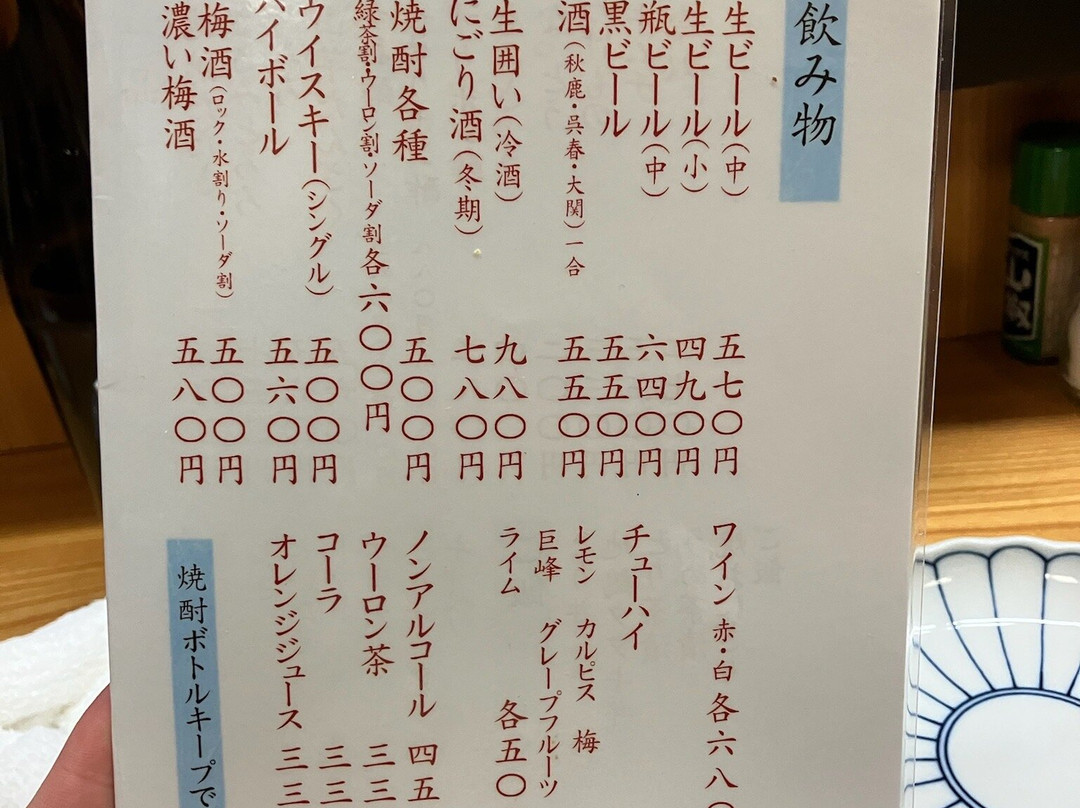 飲み物
生ビール(中) 五七〇円
生ビール(小) 四九〇円
瓶ビール(中) 六四〇円
黒ビール 五五〇円
酒(秋鹿・呉春・大関)一合 五五〇円
生囲い(冷酒) 九八〇円
にごり酒(冬期) 七八〇円
焼酎各種 五〇〇円
緑茶割・ウーロン割・ソーダ割各六〇〇円
ウイスキー(シングル) 五〇〇円
ハイボール 五六〇円
梅酒(ロック・水割り・ソーダ割) 五〇〇円
濃い梅酒 五八〇円
ワイン 赤・白 各六八〇
チューハイ
レモン カルピス 梅
巨峰 グレープフルーツ
ライム 各五〇
ノンアルコール 四五
ウーロン茶 三三
コーラ 三三
オレンジジュース 三三
焼酎ボトルキープで
山椒